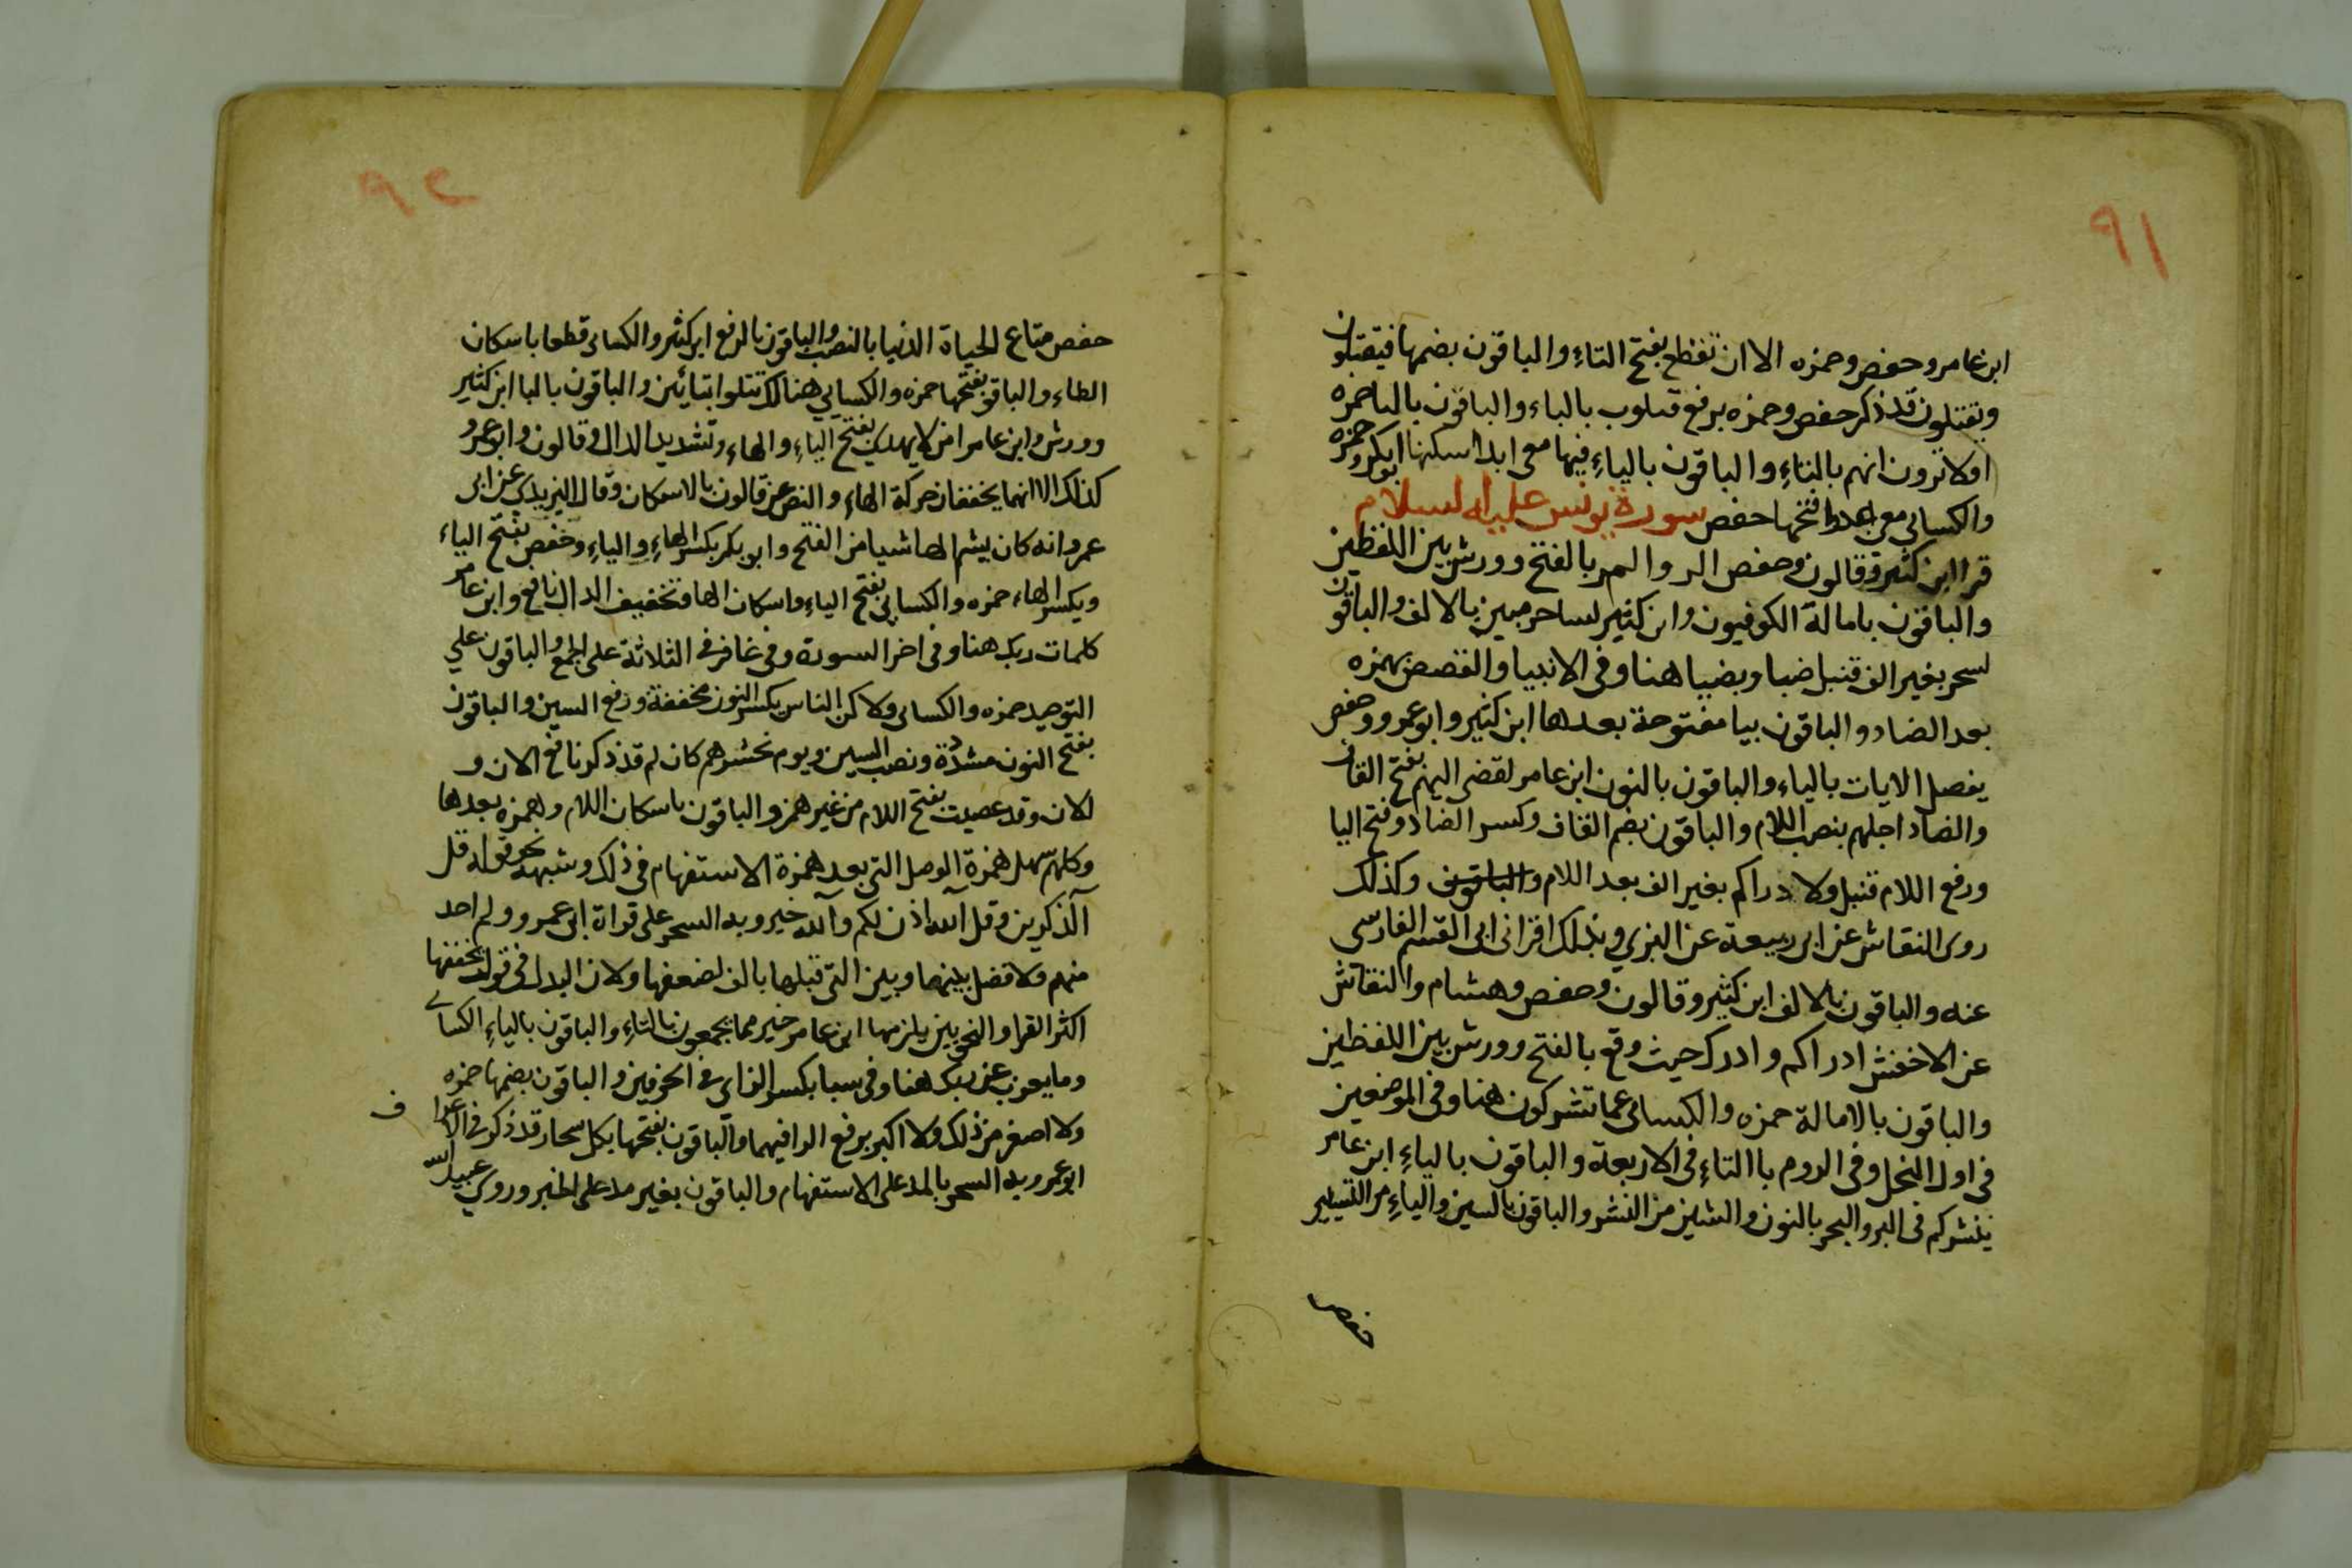 ٩١
ابن عامر وحفص وحمزه الا ان تقطع بفتح التاء والباقون بضمها فيقتلون
ويقتلون قد ذكر حفص وحمزه يرفع قلوب بالياء والباقون بالتا حمزه
اولا ترون انهم بالتاء والباقون بالياء فيها معي ابدا اسكنها ابو بكر وحمزه
والكسائى معى عدوا فتحها حفص سورة يونس عليه السلام
قرا ابن كثير وقالون وحفص الر والمر بالفتح وورش بين اللفظين
والباقون بامالة الكوفيون وابن كثير لساحر مبين بالالف والباقون
لسحر بغير الف قنبل ضيا وبضيا هنا وفى الانبيا والقصص بهمزه
بعد الضاد والباقون بيا مفتوحة بعدها ابن كثير وابو عمرو وحفص
يفصل الايات بالياء والباقون بالنون ابن عامر لقضى اليهم بفتح القاف
والضاد اجلهم بنصب اللام والباقون بضم القاف وكسر الضاد وفتح اليا
ورفع اللام قنبل ولا دراكم بغير الف بعد اللام والباقون وكذلك
روى النقاش عن ابى ربيعة عن البزي وبذلك اقرانى ابى القسم الفارسى
عنه والباقون بالالف ابن كثير وقالون وحفص وهشام والنقاش
عن الاخفش ادراكم وادرك حيث وقع بالفتح وورش بين اللفظين
والباقون بالامالة حمزه والكسائى عما تشركون هنا وفى الموضعين
فى اول النحل وفى الروم باالتاء فى الاربعة والباقون بالياء ابن عامر
ينشركم فى البر والبحر بالنون والشين من النشر والباقون بالسين والياء من التسيير
حفص
٩٢
حفص متاع الحياة الدنيا بالنصب والباقون بالرفع ابن كثير والكسائى قطعا باسكان
الطاء والباقو بفتحها حمزه والكسايي هنالك تتلوا بتائين والباقون بالبا ابن كثير
وورش وابن عامر امن لا يهدي بفتح الياء والهاء وتشديد الدال وقالون وابو عمرو
كذلك الا انهما يخففان حركة الهاء والنص عن قالون بالاسكان وقال اليزيدي عن ابى
عمرو انه كان يشم الها شيا من الفتح وابو بكر بكسر الهاء والياء وحفص بفتح الياء
ويكسر الهاء حمزه والكسايي بفتح الياء واسكان الها وتخفيف الدال نافع وابن عامر
كلمات ربك هنا وفى اخر السورة وفى غافر فى الثلاثة على الجمع والباقون علي
التوحيد حمزه والكسائى ولاكن الناس بكسر النون مخففة ورفع السين والباقون
بفتح النون مشددة ونصب السين ويوم نحشرهم كان لم قد ذكر نافع الان و
الان وقد عصيت بفتح اللام من غير همز والباقون باسكان اللام وهمزه بعدها
وكلهم سهل همزة الوصل التى بعد همزة الاستفهام فى ذلك وشبهه نحو قوله قل
آلذكرين وقل آلله اذن لكم وآلله خير وبه السحر على قراة ابى عمرو ولم احد
منهم ولا فصل بينهما وبين التى قبلها بالف لضعفها ولان البدل فى قول
اكثر القرا والنحويين يلزمها ابن عامر خير مما يجمعون بالتاء والباقون بالياء الكسائى
وما يعزب عن ربك هنا وفى سبا بكسر الزاى فى الحرفين والباقون بضمها حمزه
ولا اصغر من ذلك ولا اكبر برفع الرا فيهما والباقون بفتحها بكل سحار قد ذكر فى الاعراف
ابو عمرو به السحر بالمد على الاستفهام والباقون بغير مد على الخبر وروي عبيد الله